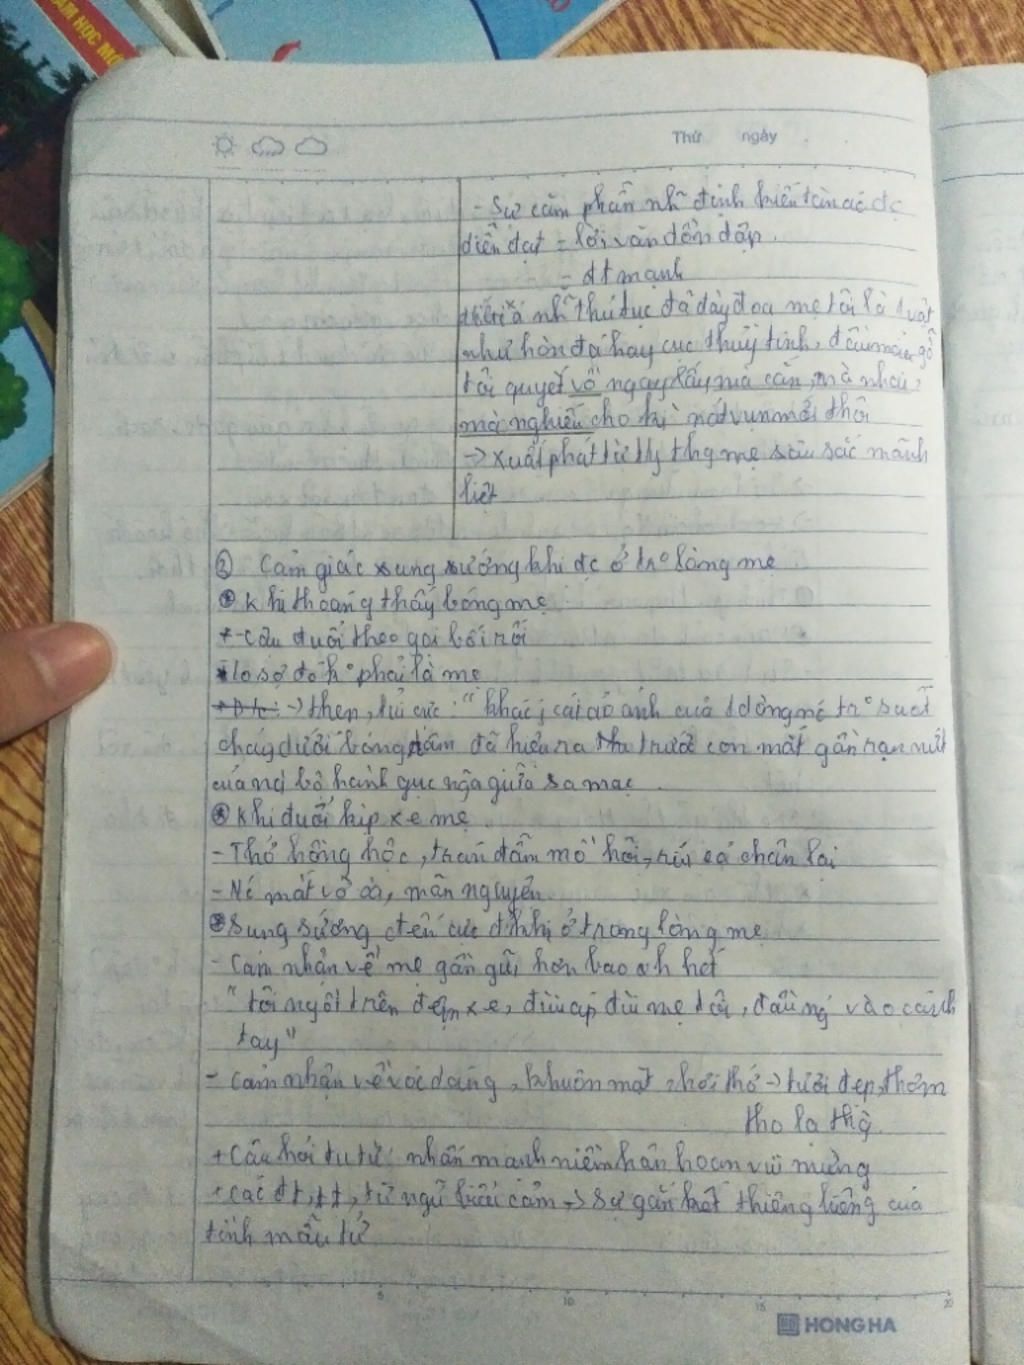 ĂM HỌC MỚ
Thứ ngày
- Sự căm phẫn nh~ định kiến tàn ác đc
diễn đạt = lời văn dồn dập.
= đt mạnh
nh~ thứ tục đã đày đoạ mẹ tôi là 1 vật
như hòn đá hay cục thuỷ tinh, đầu mẩu gỗ
tôi quyết vồ ngay lấy mà cắn, mà nhai,
mà nghiến cho kì nát vụn mới thôi
-> Xuất phát từ ty thg mẹ sâu sắc mãnh
liệt
② Cảm giác sung sướng khi đc ở tr° lòng mẹ
* Khi thoáng thấy bóng mẹ
+ - Cứu đuổi theo gọi bối rối
+ lo sợ đó k° phải là mẹ
-> thẹn, tủi cực: " khác j cái ảo ảnh của 1 dòng nc tr° suốt
chảy dưới bóng dâm đã hiện ra trc con mắt gần rạn nứt
của ng bộ hành gục ngã giữa sa mạc.
* Khi đuổi kịp xe mẹ
- Thở hồng hộc, trán đẫm mồ hôi, ríu cả chân lại
- Nc mắt vỡ oà, mãn nguyện
* Sung sướng đến cực khi ở trong lòng mẹ
- Cảm nhận về mẹ gần gũi hơn bao h hết
" tôi ngồi trên đệm xe, đùi áp đùi mẹ tôi, đầu ngả vào cánh
tay "
- Cảm nhận về vóc dáng, khuôn mặt, hơi thở -> tươi đẹp, thơm
tho lạ thg
+ Câu hỏi tu từ: nhấn mạnh niềm hân hoan vui mừng
+ các đt, tt, từ ngữ biểu cảm -> Sự gắn kết thiêng liêng của
tình mẫu tử
5 10 15 20
HONG HA